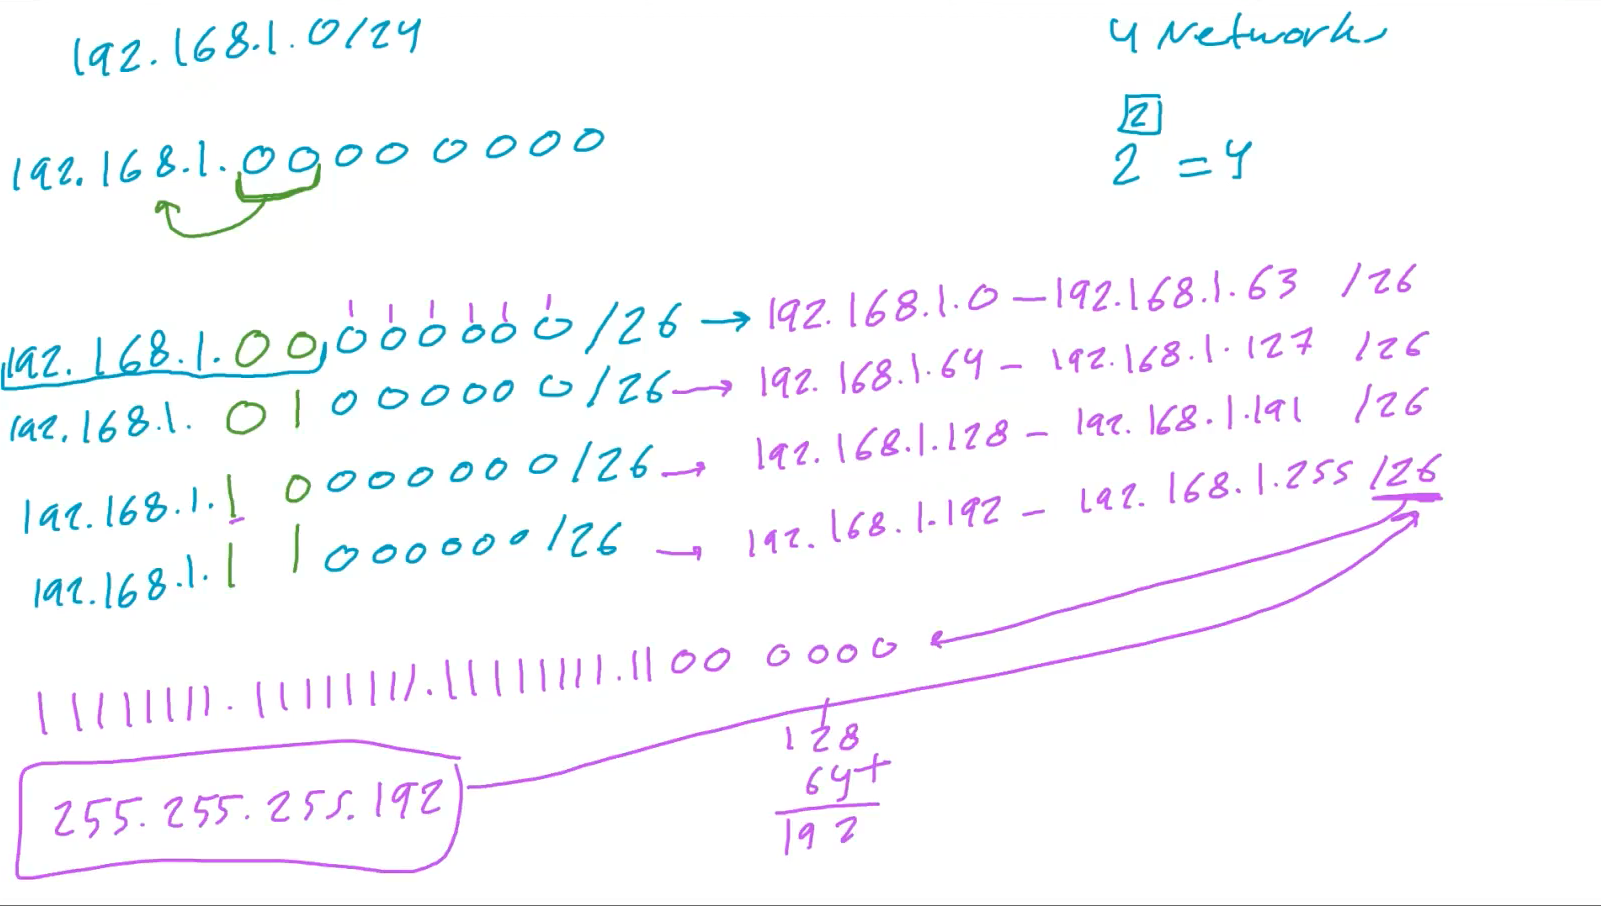 192.168.1.0/24
4 Networks
192.168.1.00000000
2
2 = 4
192.168.1.00000000/26 → 192.168.1.0 – 192.168.1.63 /26
1 1 1 1 1 1
192.168.1.01000000/26 → 192.168.1.64 – 192.168.1.127 /26
192.168.1.10000000/26 → 192.168.1.128 – 192.168.1.191 /26
192.168.1.11000000/26 → 192.168.1.192 – 192.168.1.255 /26
11111111.11111111.11111111.1100 0000
128
64+
192
255.255.255.192